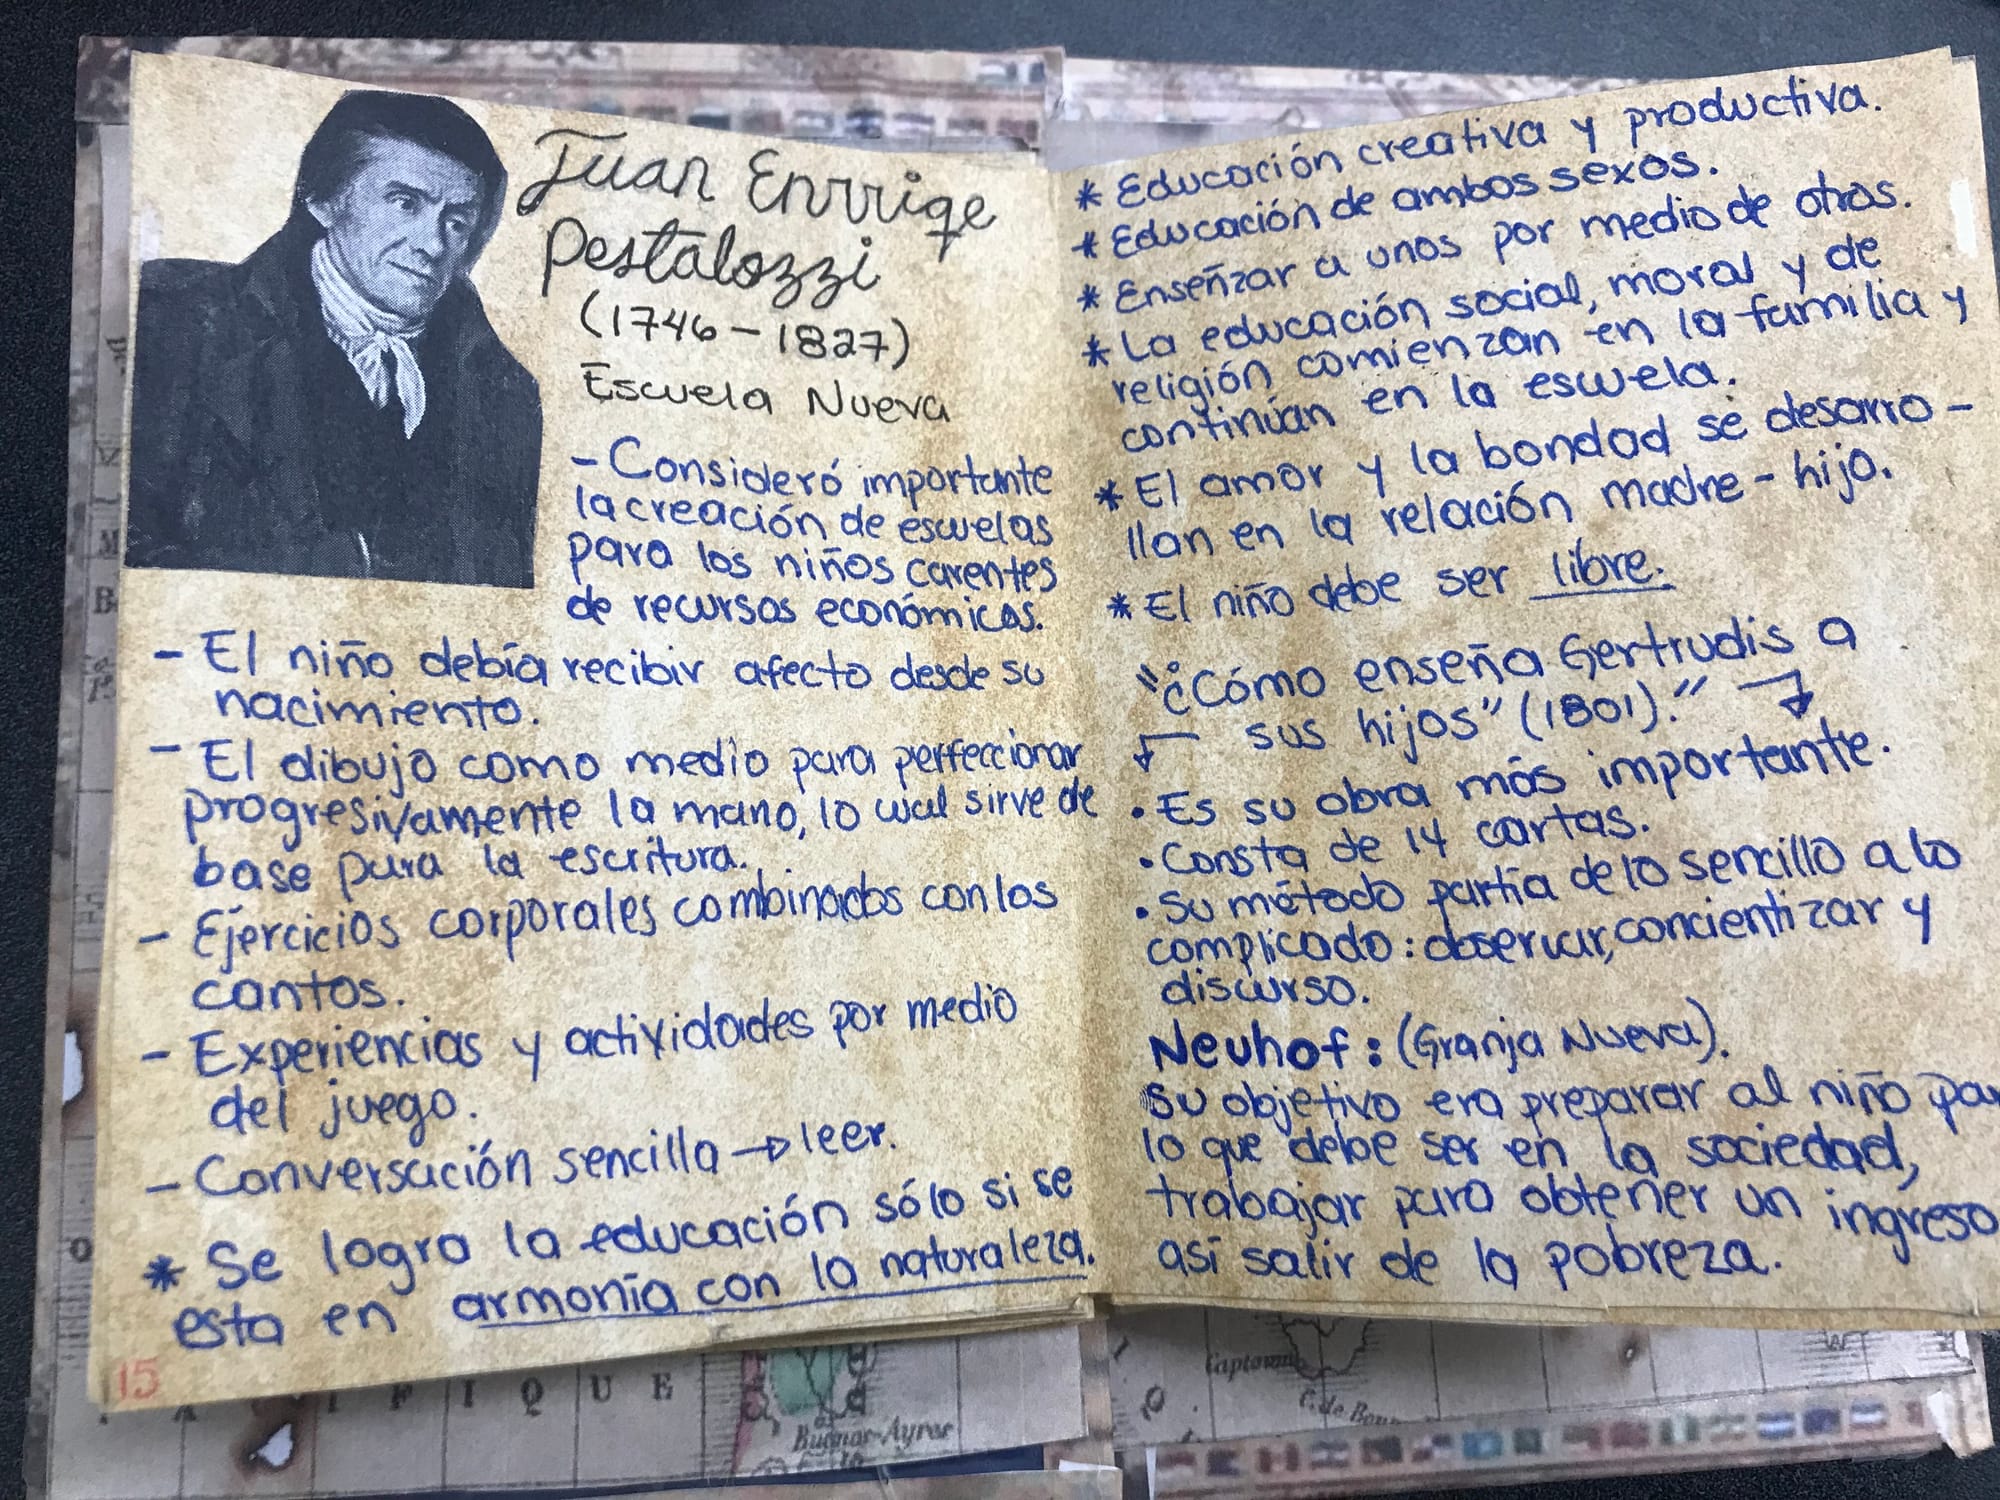 Juan Enrriqe
Pestalozzi
(1746-1827)
Escuela Nueva
- Consideró importante
la creación de escuelas
para los niños carentes
de recursos económicos.
- El niño debía recibir afecto desde su
nacimiento.
- El dibujo como medio para perfeccionar
progresivamente la mano, lo cual sirve de
base para la escritura.
- Ejercicios corporales combinados con los
cantos.
- Experiencias y actividades por medio
del juego.
- Conversación sencilla → leer.
* Se logra la educación sólo si se
esta en armonía con la naturaleza.
15
* Educación creativa y productiva.
* Educación de ambos sexos.
* Enseñzar a unos por medio de otros.
* La educación social, moral y de
religión comienzan en la familia y
continúan en la escuela.
* El amor y la bondad se desarro-
llan en la relación madre-hijo.
* El niño debe ser libre.
"¿Cómo enseña Gertrudis a
sus hijos" (1801)."
• Es su obra más importante.
• Consta de 14 cartas.
• Su método partía de lo sencillo a lo
complicado: observar, concientizar y
discurso.
Neuhof: (Granja Nueva).
Su objetivo era preparar al niño pa
lo que debe ser en la sociedad,
trabajar para obtener un ingreso
así salir de la pobreza.
F I Q U E
Buenos-Ayres
Captown
C. de Bon